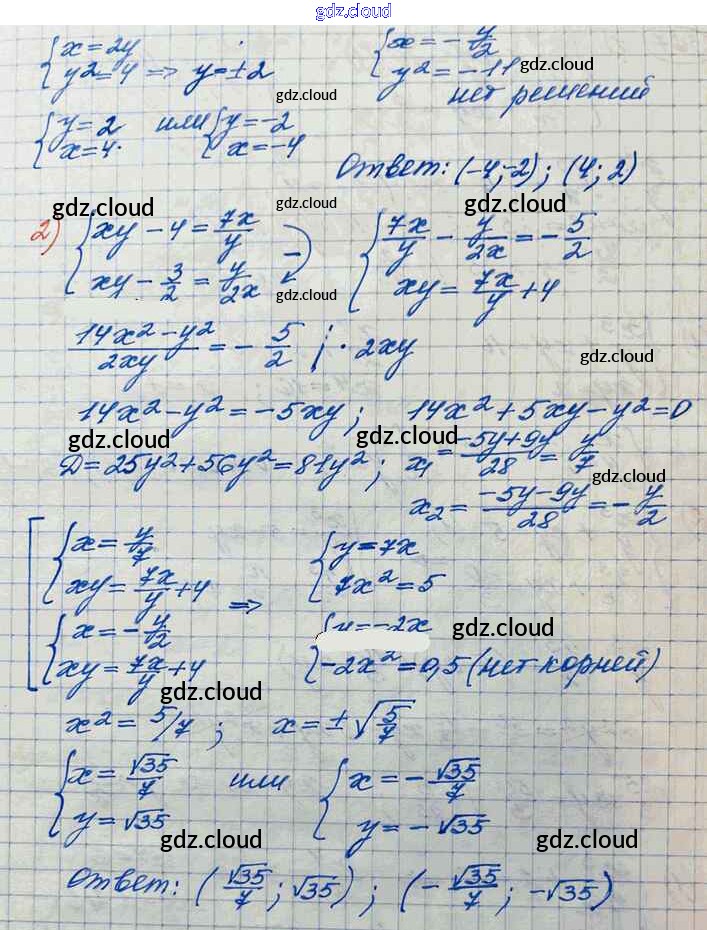 gdz.cloud
{x = 2y {x = -y/2
{y² = 4 => y = ±2 {y² = -11 gdz.cloud
gdz.cloud нет решений
{y = 2 или {y = -2
{x = 4. {x = -4
Ответ: (-4; -2); (4; 2)
gdz.cloud gdz.cloud gdz.cloud
2) {xy - 4 = 7x/y {7x/y - y/2x = -5/2
{xy - 3/2 = y/2x - {xy = 7x/y + 4
gdz.cloud
(14x² - y²)/2xy = -5/2 | · 2xy gdz.cloud
14x² - y² = -5xy; 14x² + 5xy - y² = 0
gdz.cloud gdz.cloud
D = 25y² + 56y² = 81y²; x₁ = (-5y + 9y)/28 = y/7
gdz.cloud
x₂ = (-5y - 9y)/28 = -y/2
[{x = y/7 {y = 7x
{xy = 7x/y + 4 => {7x² = 5
{x = -y/2 {y = -2x gdz.cloud
{xy = 7x/y + 4 {-2x² = 0,5 (нет корней)
gdz.cloud
x² = 5/7; x = ±√(5/7)
{x = √35/7 или {x = -√35/7
{y = √35 {y = -√35
gdz.cloud gdz.cloud
Ответ: (√35/7; √35); (-√35/7; -√35)